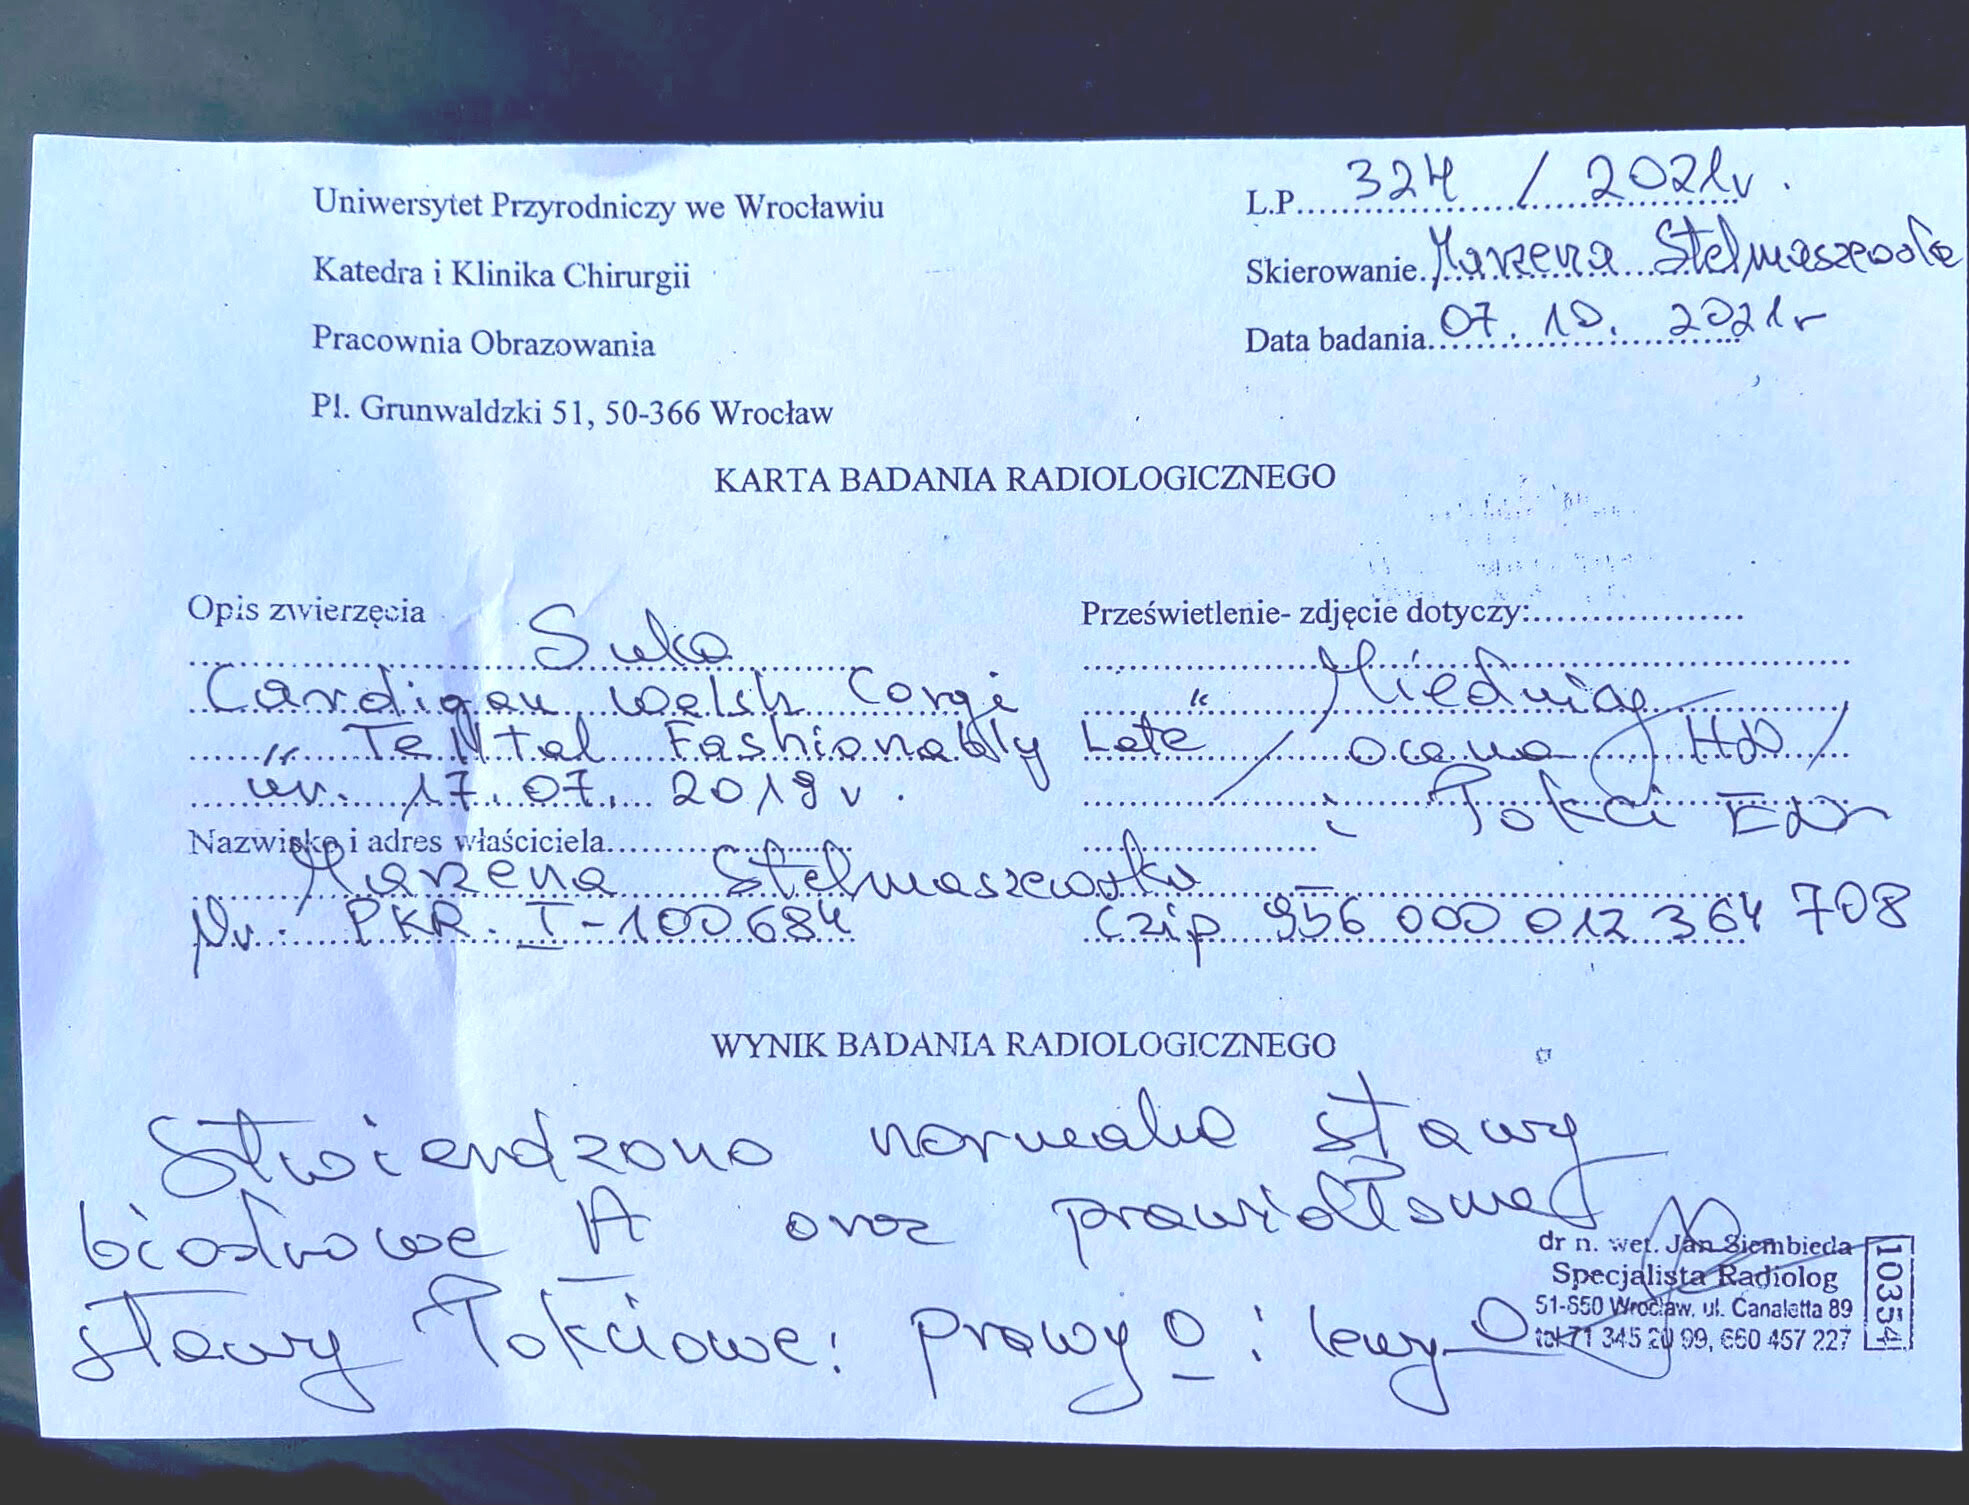 Uniwersytet Przyrodniczy we Wrocławiu
L.P. 324 / 2021r.
Katedra i Klinika Chirurgii
Skierowanie. Marzena Stelmaszewska
Pracownia Obrazowania
Data badania. 07. 10. 2021r
Pl. Grunwaldzki 51, 50-366 Wrocław
KARTA BADANIA RADIOLOGICZNEGO
Opis zwierzęcia
Prześwietlenie- zdjęcie dotyczy:
Suka
Cardigan Welsh Corgi
" Miednicy
" TeMtal Fashionably Late / ocena HD /
ur. 17. 07. 2019 r.
i łokci ED
Nazwisko i adres właściciela
Marzena Stelmaszewska
Nr. PKR. I-100684
Czip 956 000 012 364 708
WYNIK BADANIA RADIOLOGICZNEGO
Stwierdzono normalne stawy
biodrowe A oraz prawidłowe
stawy łokciowe: prawy 0 i lewy 0
dr n. wet. Jan Siembieda
Specjalista Radiolog
51-650 Wrocław. ul. Canaletta 89
tel 71 345 20 99, 660 457 227
10354